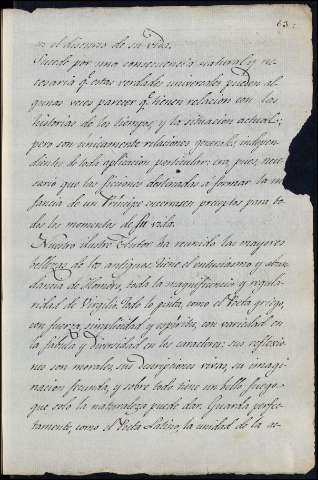 63.
en el discurso de su vida.
Puede por una consecuencia natural y ne-
cesaria qᵉ estas verdades universales puedan al-
gunas veces parecer qᵉ tienen relacion con las
historias de los tiempos, y la situación actual;
pero son únicamente relaciones generales, indepen-
dientes de toda aplicacion particular: era pues, nece-
sario que las ficciones destinadas á formar la in-
fancia de un Principe encerrasen preceptos para to-
dos los momentos de su vida.
Nuestro ilustre Autor ha reunido las mayores
bellezas de los antiguos: tiene el entusiasmo y abun-
dancia de Homero, toda la magnificencia y regula-
ridad de Virgilio. Todo lo pinta, como el Poeta griego,
con fuerza, simplicidad y espíritu, con variedad en
la fabula y diversidad en los caracteres: sus reflexio-
nes son morales, sus descripciones vivas, su imagi-
nacion fecunda, y sobre todo tiene un bello fuego
que solo la naturaleza puede dar. Guarda perfec-
tamente, como el Poeta Latino, la unidad de la ac-